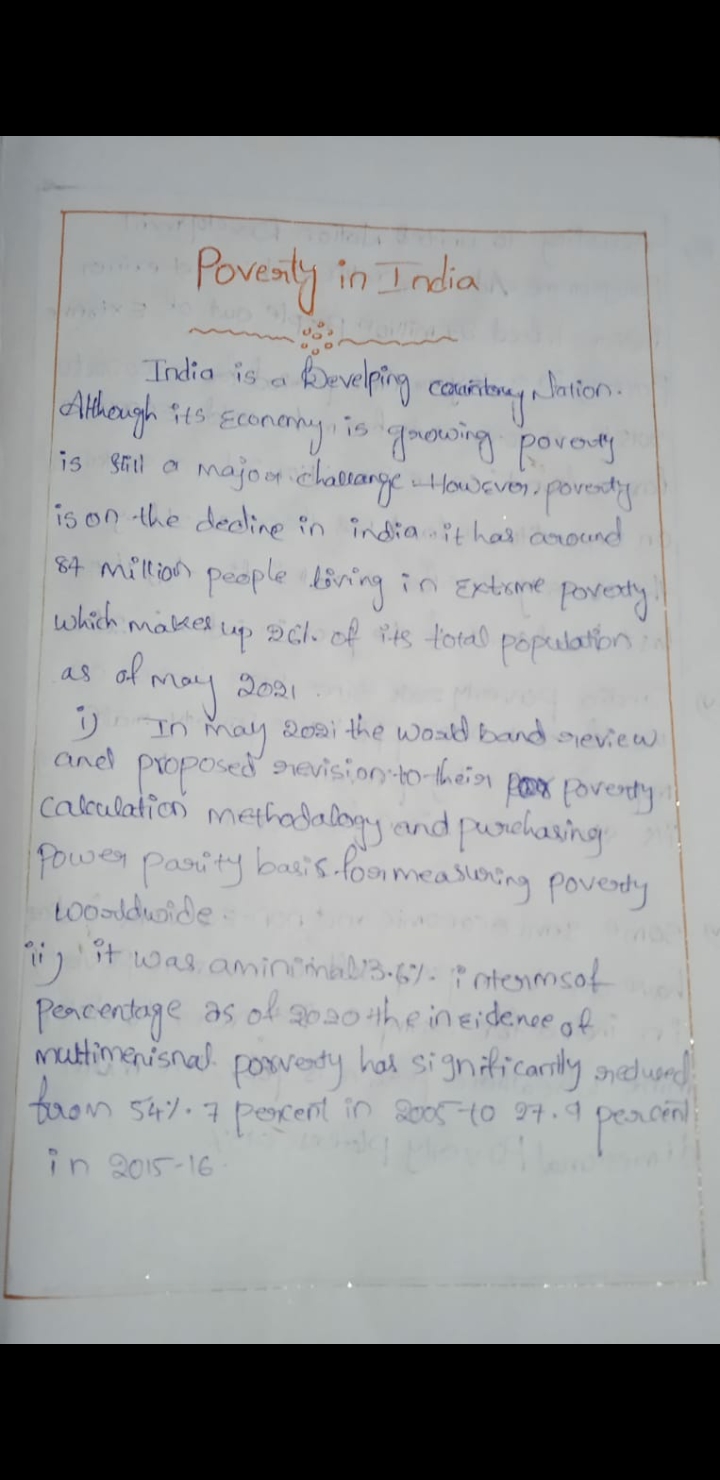 Poverty in India
India is a Develping country Nation.
Although its Economy is growing poverty
is still a major challange. However, poverty
is on the decline in india. it has around
84 million people living in Extrme poverty.
which makes up 26%. of its total population
as of may 2021.
i) In may 2021 the world band review
and proposed revision to their poverty
calculation methodalogy and purchasing
Power parity basis for measuring poverty
worldwide
ii) it was aminimal 3.6%. intermsof
percentage as of 2020 the incidence of
multimenisnal povverty has significantly reduced
from 54%.7 percent in 2005 to 27.9 percent
in 2015-16.